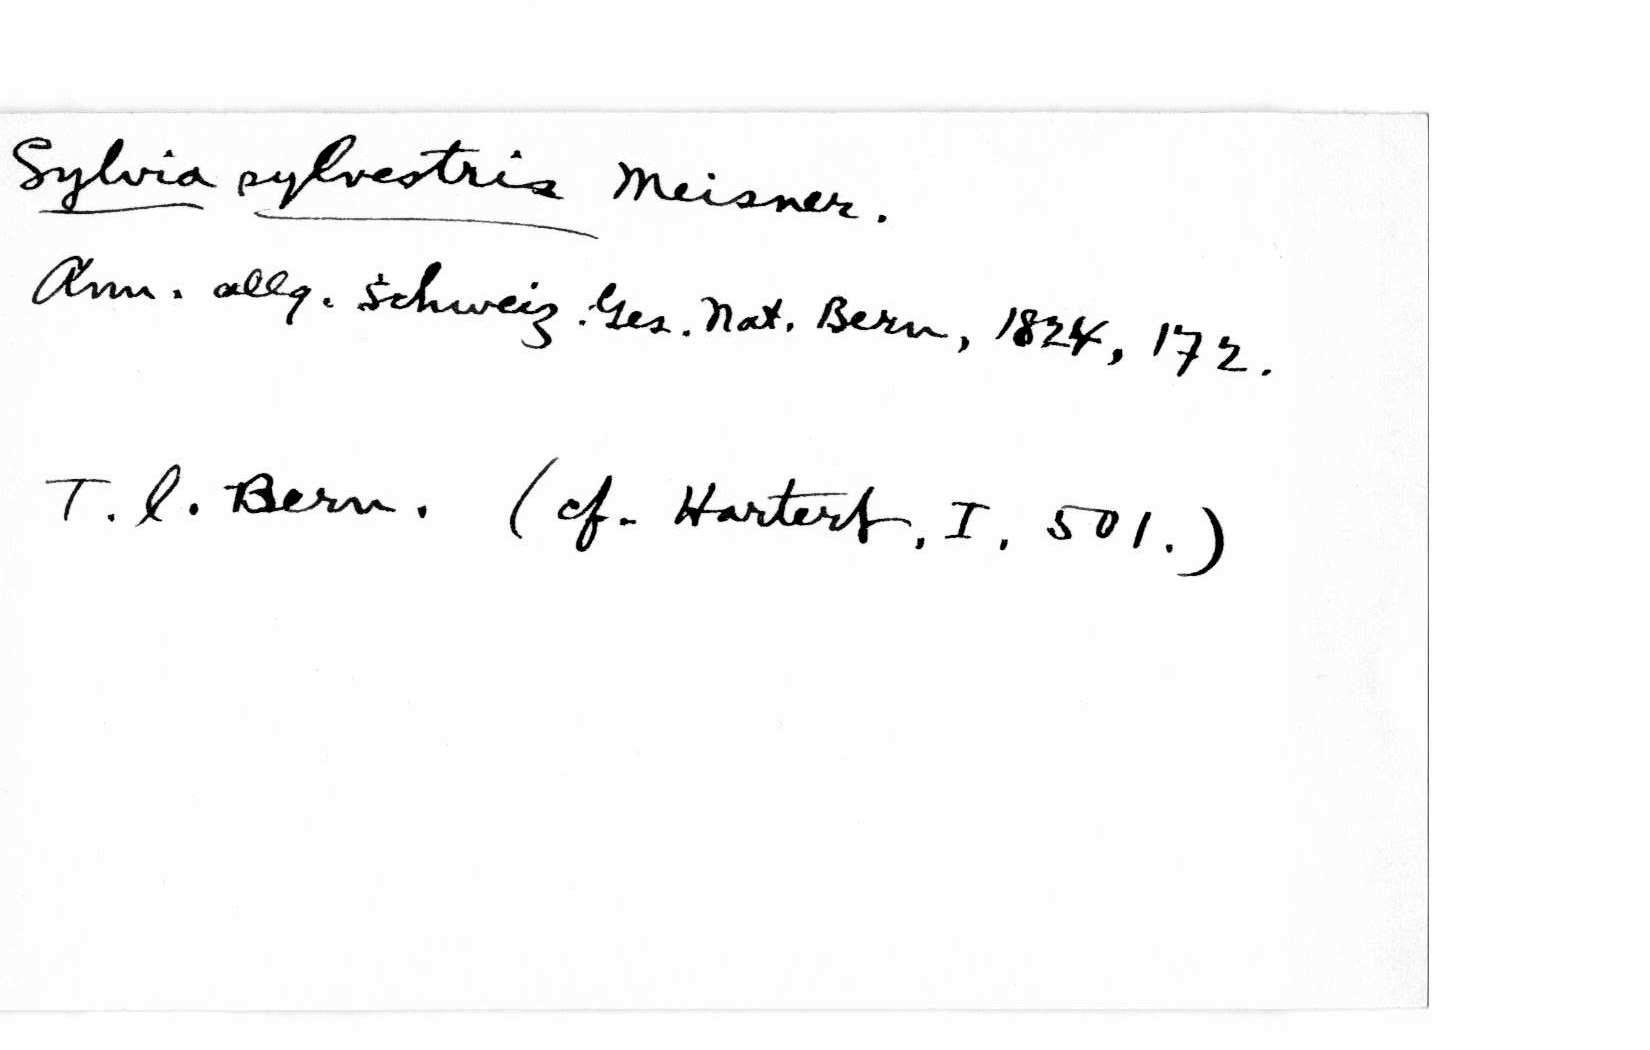 Sylvia sylvestris Meisner.
Ann. allg. Schweiz. Ges. Nat. Bern, 1824, 172.
T. l. Bern. (cf. Hartert, I, 501.)